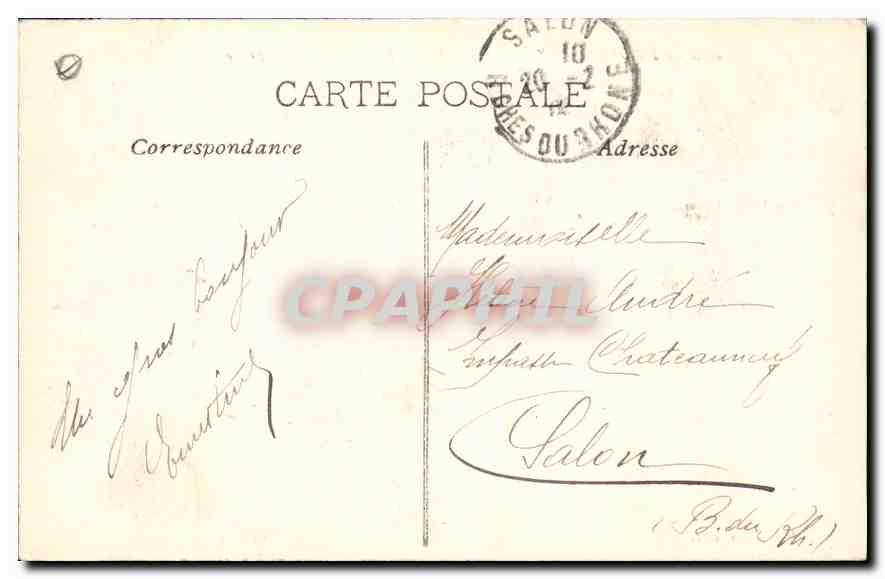 SALON
10
20 -2
14
BCHES DU RHONE
CARTE POSTALE
Correspondance
Adresse
Un gros bonjour
Ernestine
Mademoiselle
André
Impasse Chateauneuf
Salon
(B. du Rh.)
CPAPHIL